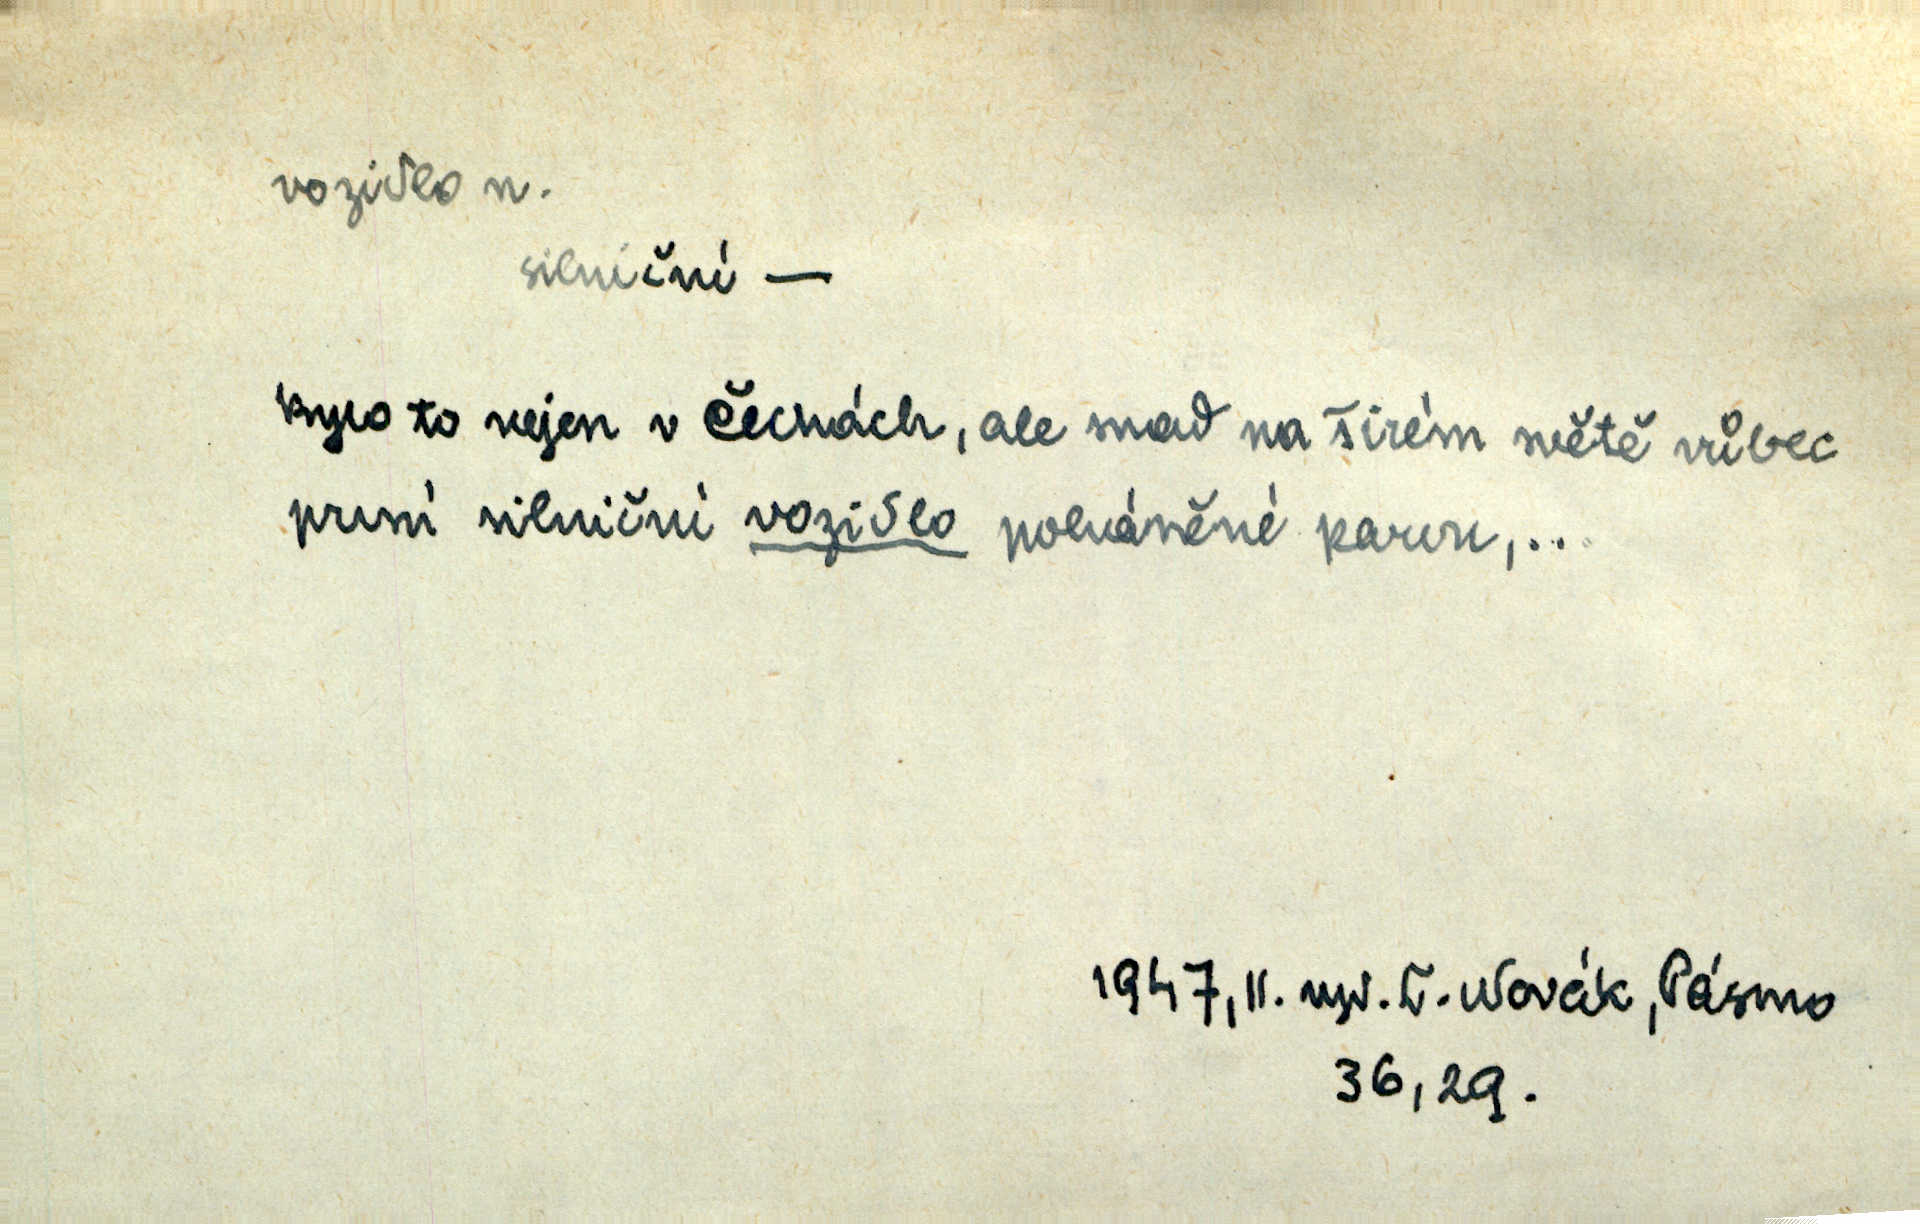 vozidlo n.
silniční —
bylo to nejen v Čechách, ale snad na širém světě vůbec
první silniční vozidlo poháněné parou,...
1947, II. vyd. Novák, Pásmo
36, 29.